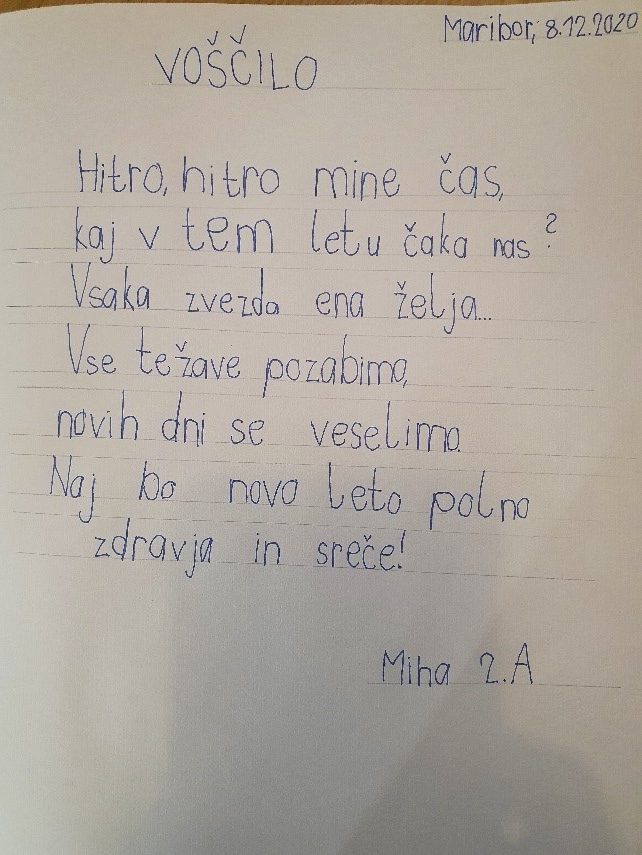 Maribor, 8.12.2020
VOŠČILO
Hitro, hitro mine čas,
kaj v tem letu čaka nas?
Vsaka zvezda ena želja...
Vse težave pozabimo,
novih dni se veselimo.
Naj bo novo leto polno
zdravja in sreče!
Miha 2.A